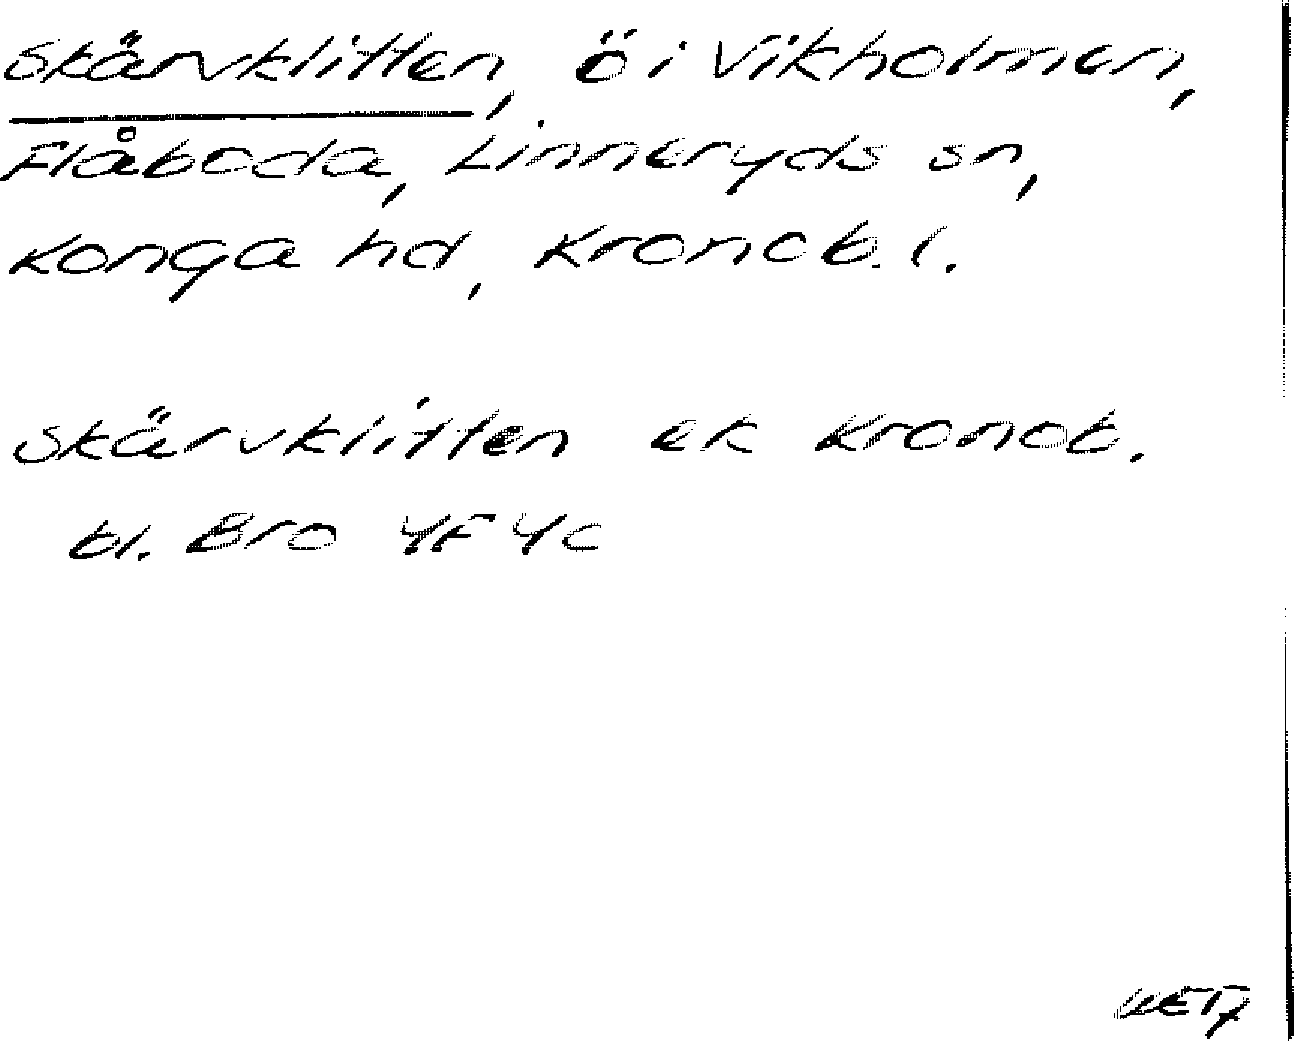 Skärvklitten, ö i Vikholmen,
Flåboda, Linneryds sn,
Konga hd, Kronob. l.
Skärvklitten ek Kronob.
bl. Bro 4F 4c